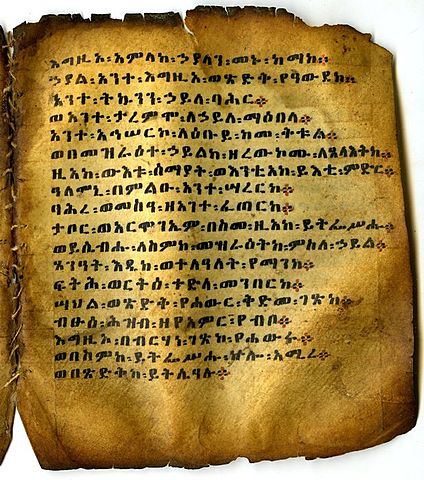 እግዚኦ፡አምላከ፡ኃያላን፡መኑ፡ከማከ፨
ኃያል፡አንተ፡እግዚኦ፡ወጽድቅ፡የዓውደከ፨
አንተ፡ትኴንን፡ኃይለ፡ባሕር፨
ወአንተ፡ታረምሞ፡ለኃይለ፡ማዕበላ፨
አንተ፡አኅሠርኮ፡ለዕቡይ፡ከመ፡ቅቱል፨
ወበመዝራዕተ፡ኃይልከ፡ዘረውኮሙ፡ለጸላእትከ፨
ዚአከ፡ውእቱ፡ሰማያት፡ወእንቲአከ፡ይእቲ፡ምድር፨
ዓለመኒ፡በምልዑ፡አንተ፡ሣረርከ፨
ባሕረ፡ወመስዓ፡ዘአንተ፡ፈጠርከ፨
ታቦር፡ወአርሞንኤም፡በስመ፡ዚአከ፡ይትፌሥሑ፨
ወይሴብሑ፡ለስምከ፡መዝራዕትከ፡ምስለ፡ኃይል፨
ጸንዓት፡እዴከ፡ወተለዓለት፡የማንከ፨
ፍትሕ፡ወርትዕ፡ተድላ፡መንበርከ፨
ሣህል፡ወጽድቅ፡የሐውር፡ቅድመ፡ገጽከ፨
ብፁዕ፡ሕዝብ፡ዘየአምር፡የብቦ፨
እግዚኦ፡በብርሃነ፡ገጽከ፡የሐውሩ፨
ወበስምከ፡ይትፌሥሑ፡ኵሎ፡አሚረ፨
ወበጽድቅከ፡ይትሌዓሉ፨